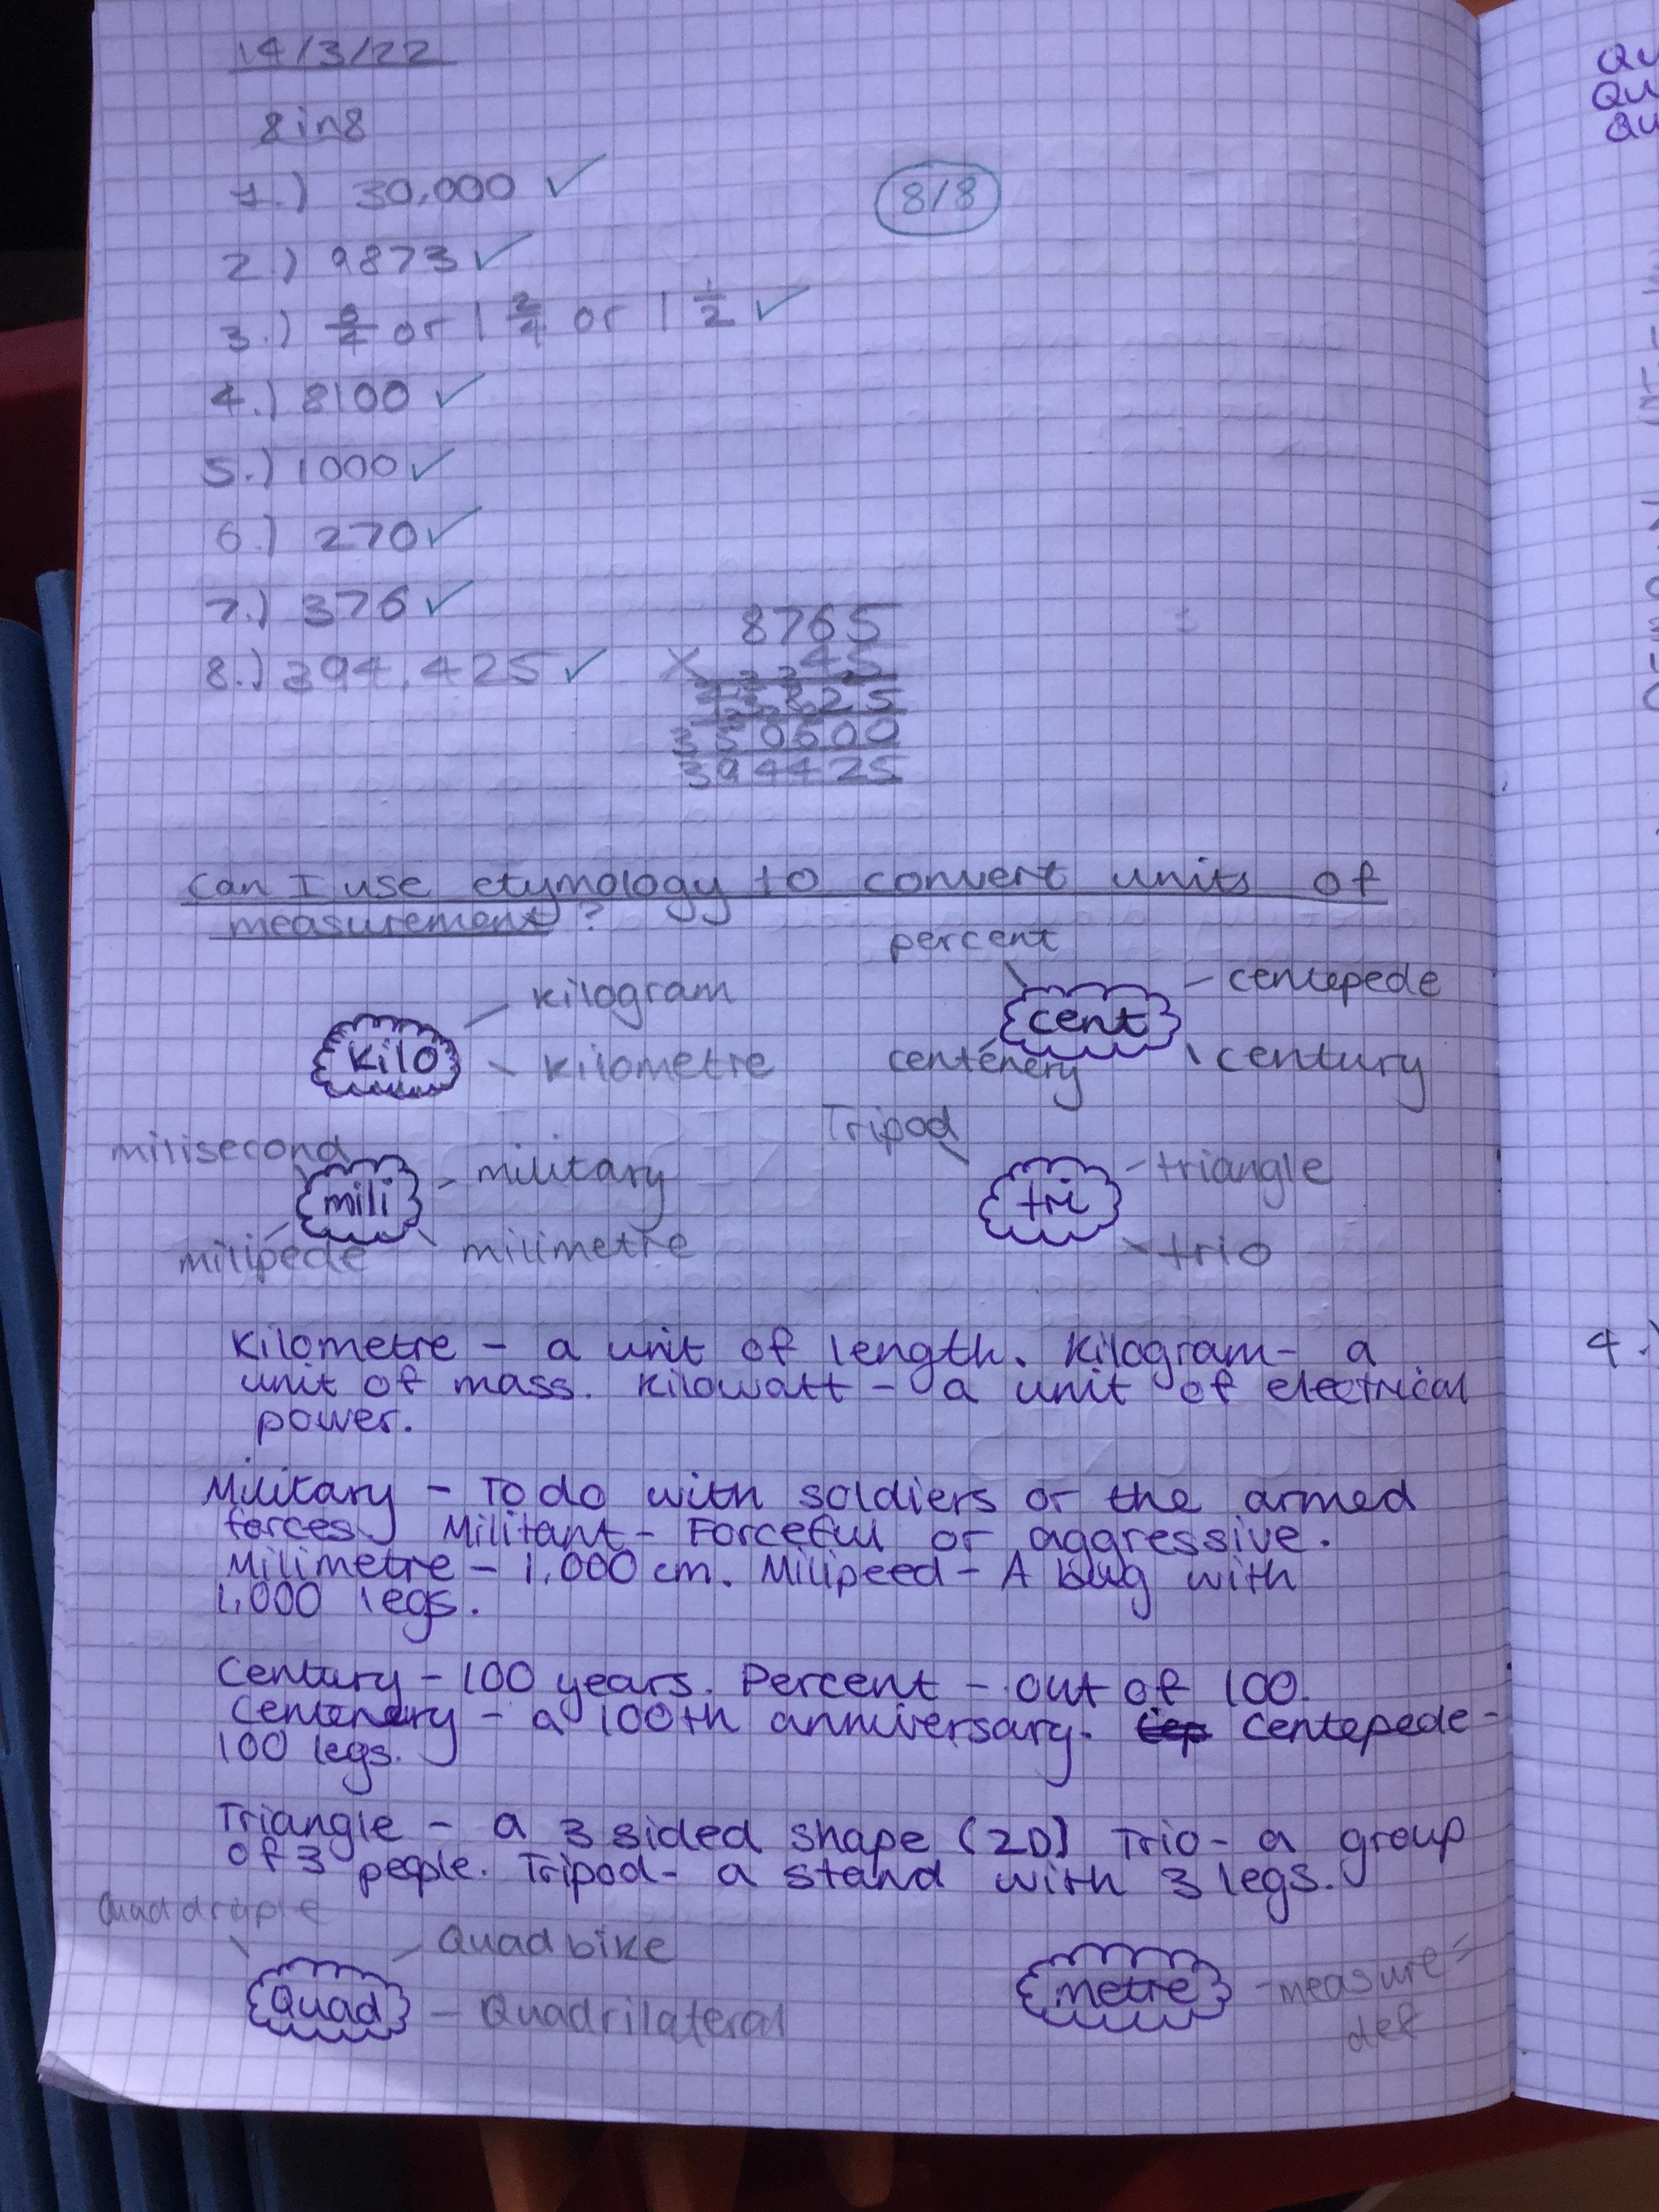 14/3/22
8 in 8
1.) 30,000 ✓
8/8
2.) 9873 ✓
3.) 6/4 or 1 2/4 or 1 1/2 ✓
4.) 8100 ✓
5.) 1000 ✓
6.) 270 ✓
7.) 376 ✓
8.) 394,425 ✓
8765
× 45
43825
350600
394425
Can I use etymology to convert units of
measurement?
kilo
kilogram
kilometre
cent
percent
centepede
centenery
century
mili
milisecond
military
milipede
milimetre
tri
Tripod
triangle
trio
Kilometre - a unit of length. Kilogram- a
unit of mass. Kilowatt - a unit of electrical
power.
Military - To do with soldiers or the armed
forces. Militant - Forceful or aggressive.
Milimetre - 1,000 cm. Milipeed - A bug with
1,000 legs.
Century - 100 years. Percent - out of 100.
Centenery - a 100th anniversary. Centepede -
100 legs.
Triangle - a 3 sided shape (2D) Trio - a group
of 3 people. Tripod- a stand with 3 legs.
Quad
Quad bike
Quadrilateral
metre
-measure=
Qu
Qu
Qu
4.)